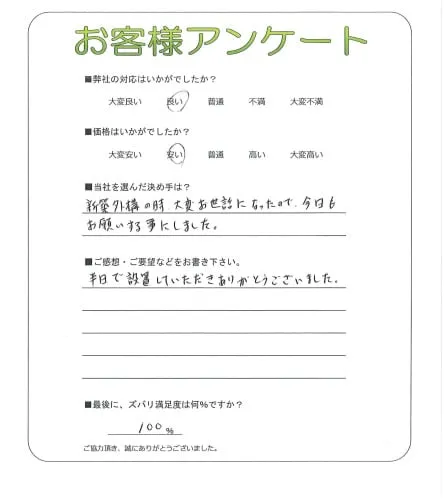 お客様アンケート
■弊社の対応はいかがでしたか？
大変良い 良い 普通 不満 大変不満
■価格はいかがでしたか？
大変安い 安い 普通 高い 大変高い
■当社を選んだ決め手は？
新築外構の時 大変お世話になったので、今回も
お願いする事にしました。
■ご感想・ご要望などをお書き下さい。
半日で設置していただきありがとうございました。
■最後に、ズバリ満足度は何%ですか？
100%
ご協力頂き、誠にありがとうございました。